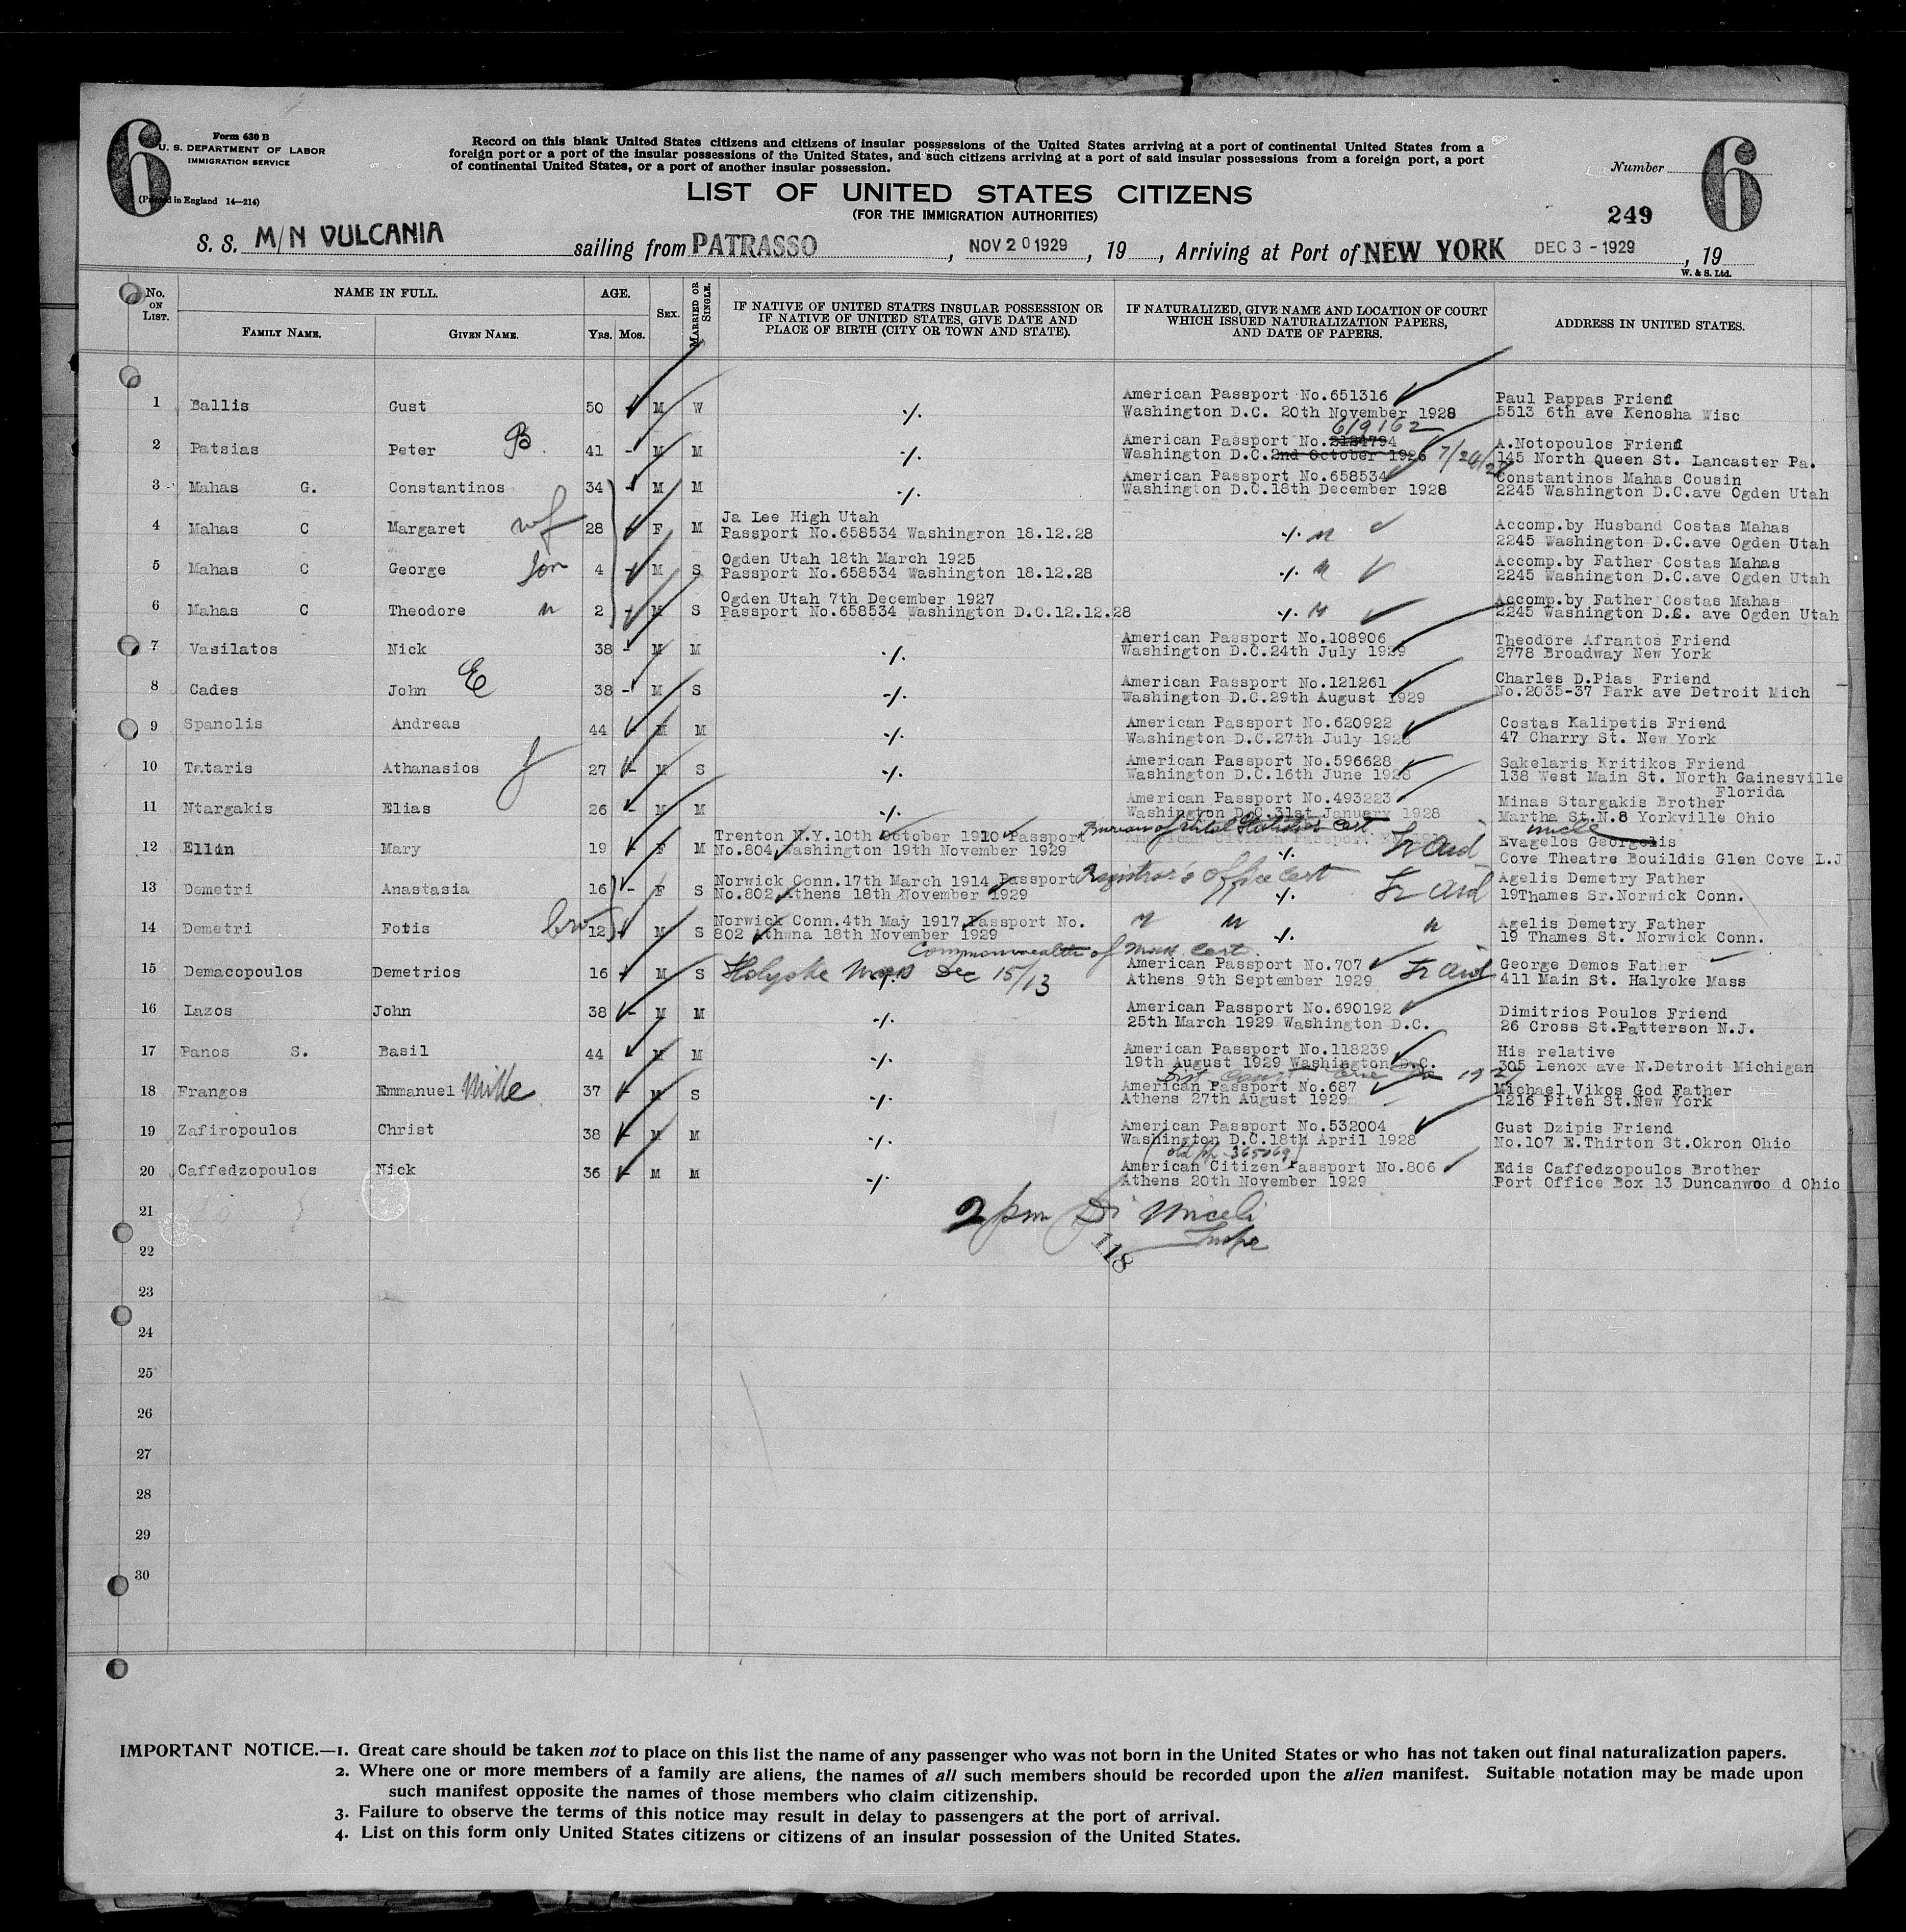 6
Form 630 B
U. S. DEPARTMENT OF LABOR
IMMIGRATION SERVICE
(Printed in England 14—214)
Record on this blank United States citizens and citizens of insular possessions of the United States arriving at a port of continental United States from a
foreign port or a port of the insular possessions of the United States, and such citizens arriving at a port of said insular possessions from a foreign port, a port
of continental United States, or a port of another insular possession.
LIST OF UNITED STATES CITIZENS
(FOR THE IMMIGRATION AUTHORITIES)
Number
6
249
S. S. M/N VULCANIA sailing from PATRASSO, NOV 20 1929, 19 , Arriving at Port of NEW YORK DEC 3 - 1929, 19
W. & S. Ltd.
No. ON LIST. NAME IN FULL. AGE. SEX. MARRIED OR SINGLE. IF NATIVE OF UNITED STATES INSULAR POSSESSION OR IF NATIVE OF UNITED STATES, GIVE DATE AND PLACE OF BIRTH (CITY OR TOWN AND STATE). IF NATURALIZED, GIVE NAME AND LOCATION OF COURT WHICH ISSUED NATURALIZATION PAPERS, AND DATE OF PAPERS. ADDRESS IN UNITED STATES.
FAMILY NAME. GIVEN NAME. YRS. MOS.
1 Ballis Gust 50 - M W -/. American Passport No.651316 Paul Pappas Friend
Washington D.C. 20th November 1928 5513 6th ave Kenosha Wisc
619162
2 Patsias Peter B. 41 - M M -/. American Passport No.2124794 A.Notopoulos Friend
Washington D.C.2nd October 1926 7/24/28 145 North Queen St. Lancaster Pa.
3 Mahas G. Constantinos 34 - M M -/. American Passport No.658534 Constantinos Mahas Cousin
Washington D.C.18th December 1928 2245 Washington D.C.ave Ogden Utah
4 Mahas C Margaret wf 28 - F M Ja Lee High Utah -/. Accomp.by Husband Costas Mahas
Passport No.658534 Washingron 18.12.28 2245 Washington D.C.ave Ogden Utah
5 Mahas C George Son 4 - M S Ogden Utah 18th March 1925 -/. Accomp.by Father Costas Mahas
Passport No.658534 Washington 18.12.28 2245 Washington D.C.ave Ogden Utah
6 Mahas C Theodore " 2 - M S Ogden Utah 7th December 1927 -/. Accomp.by Father Costas Mahas
Passport No.658534 Washington D.C.12.12.28 2245 Washington D.C. ave Ogden Utah
7 Vasilatos Nick 38 - M M -/. American Passport No.108906 Theodore Afrantos Friend
Washington D.C.24th July 1929 2778 Broadway New York
8 Cades John E 38 - M S -/. American Passport No.121261 Charles D.Pias Friend
Washington D.C.29th August 1929 No.2035-37 Park ave Detroit Mich
9 Spanolis Andreas 44 - M M -/. American Passport No.620922 Costas Kalipetis Friend
Washington D.C.27th July 1928 47 Charry St. New York
10 Tataris Athanasios J 27 - M S -/. American Passport No.596628 Sakelaris Kritikos Friend
Washington D.C.16th June 1928 138 West Main St. North Gainesville
Florida
11 Ntargakis Elias 26 - M M -/. American Passport No.493223 Minas Stargakis Brother
Washington D.C.31st January 1928 Martha St.N.8 Yorkville Ohio
Bureau of Vital Statistics Cert uncle
12 Ellin Mary 19 - F M Trenton N.Y.10th October 1910 Passport -/. Evagelos Georgelis
No.804 Washington 19th November 1929 Cove Theatre Bouildis Glen Cove L.J
13 Demetri Anastasia 16 - F S Norwick Conn.17th March 1914 Passport Registrar's Office Cert -/. Agelis Demetry Father
No.802 Athens 18th November 1929 19Thames Sr.Norwick Conn.
14 Demetri Fotis bro 12 - M S Norwick Conn.4th May 1917 Passport No. " " -/. " Agelis Demetry Father
802 Athwna 18th November 1929 19 Thames St. Norwick Conn.
Commonwealth of Mass Cert.
15 Demacopoulos Demetrios 16 - M S Holyoke Mass Dec 15/13 American Passport No.707 George Demos Father
Athens 9th September 1929 411 Main St. Halyoke Mass
16 Lazos John 38 - M M -/. American Passport No.690192 Dimitrios Poulos Friend
25th March 1929 Washington D.C. 26 Cross St.Patterson N.J.
17 Panos S. Basil 44 M M -/. American Passport No.118239 His relative
19th August 1929 Washington D.C. 305 Lenox ave N.Detroit Michigan
18 Frangos Emmanuel Mike 37 - M S -/. American Passport No.687 Michael Vikos God Father
Athens 27th August 1929 1216 Piteh St.New York
19 Zafiropoulos Christ 38 - M M -/. American Passport No.532004 Gust Dzipis Friend
Washington D.C.18th April 1928 No.107 E.Thirton St.Okron Ohio
20 Caffedzopoulos Nick 36 - M M -/. American Citizen Passport No.806 Edis Caffedzopoulos Brother
Athens 20th November 1929 Port Office Box 13 Duncanwoo d Ohio
21 2 pm Di Miceli
Inspr
118
22
23
24
25
26
27
28
29
30
IMPORTANT NOTICE.—1. Great care should be taken not to place on this list the name of any passenger who was not born in the United States or who has not taken out final naturalization papers.
2. Where one or more members of a family are aliens, the names of all such members should be recorded upon the alien manifest. Suitable notation may be made upon
such manifest opposite the names of those members who claim citizenship.
3. Failure to observe the terms of this notice may result in delay to passengers at the port of arrival.
4. List on this form only United States citizens or citizens of an insular possession of the United States.